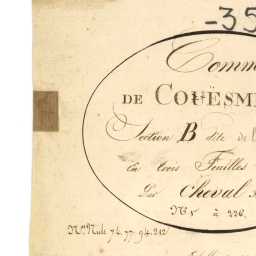 -35
Comm
DE COUËSM
Section B dite de l
En trois Feuilles
Par Cheval
N.os 1 à 226.
N.os Nuls 76. 77. 94. 212